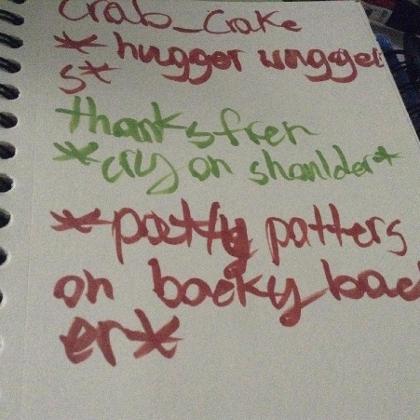 crab_crake
* hugger wugger
s*
thanks fren
*cry on shoulder*
*patty patters
on backy back
er*